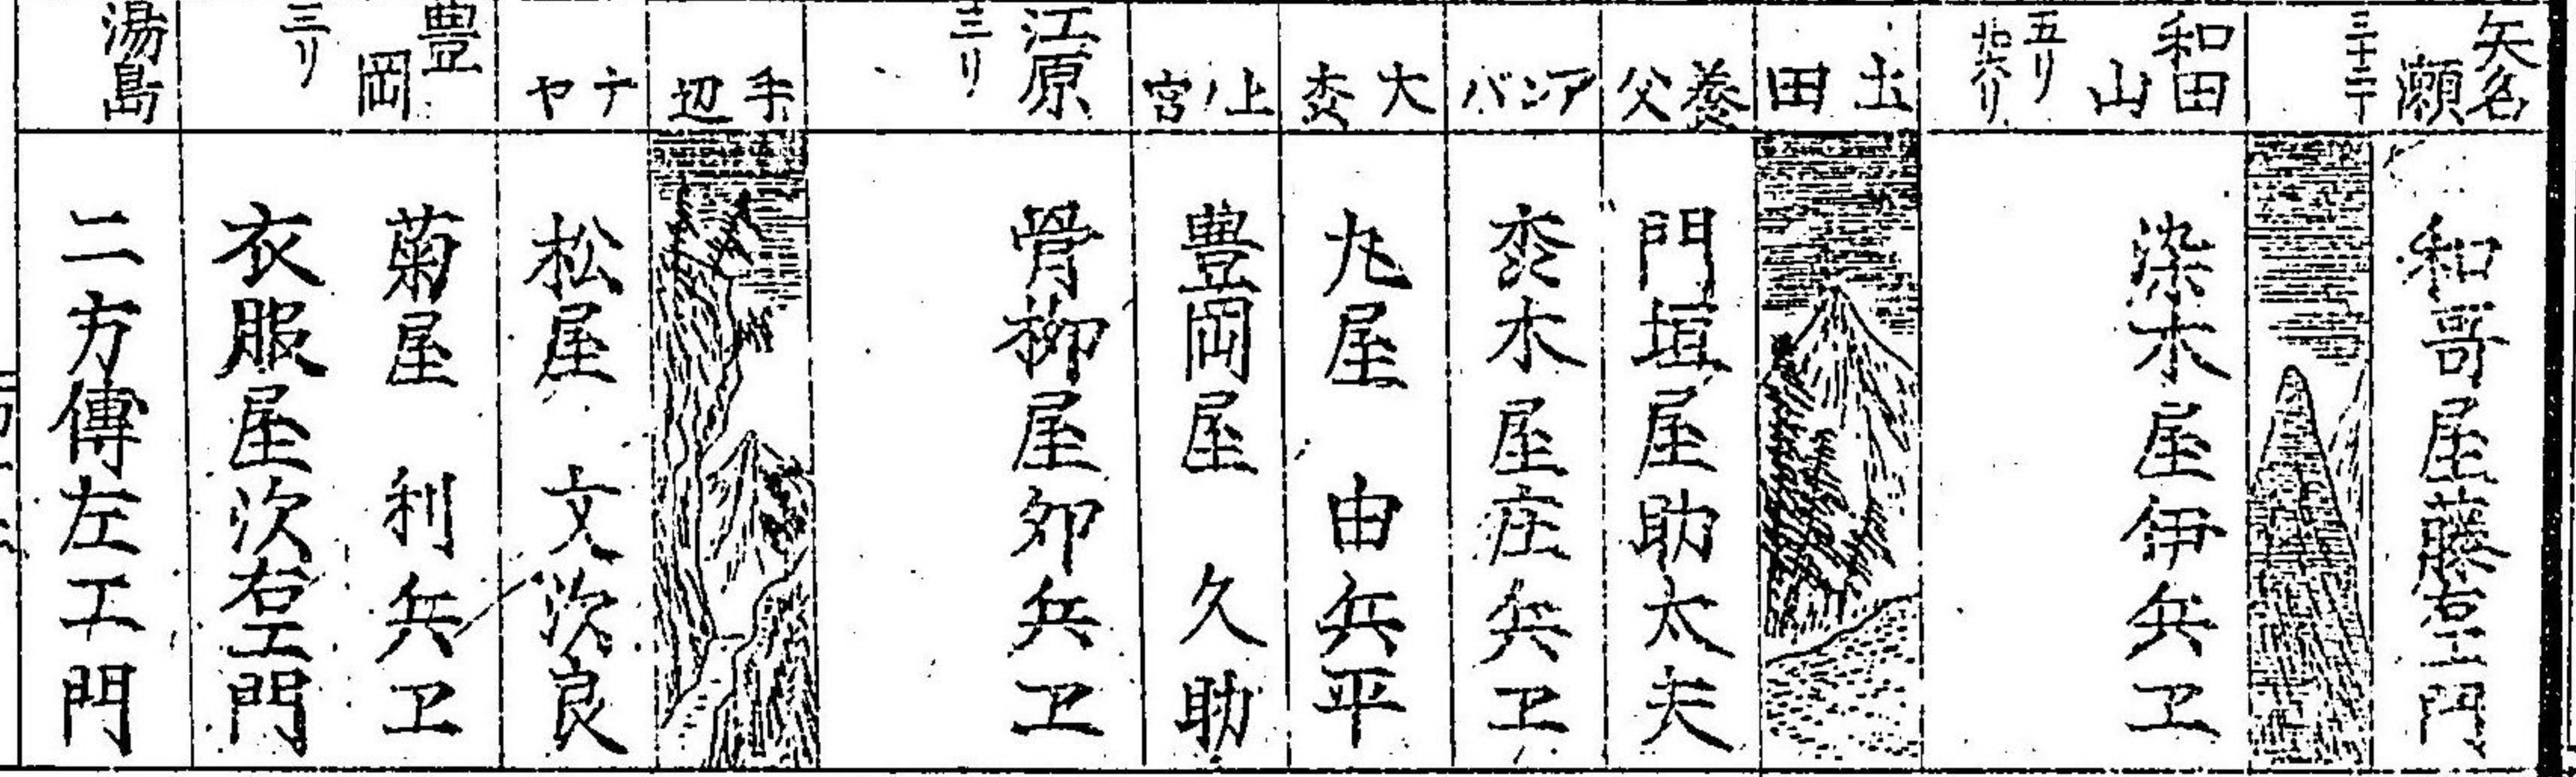 矢名瀬
三十二丁
和哥屋藤右エ門
和田山
五リ
染木屋伊兵卫
土田
養父
門垣屋助太夫
アンバ
枩木屋庄兵卫
大枩
丸屋 由兵平
上ノ宮
豊岡屋 久助
江原
三リ
骨柳屋卯兵卫
手辺
ナヤ
松屋 文次良
豊岡
三リ
菊屋 利兵卫
衣服屋次右エ門
湯島
二方傳左エ門